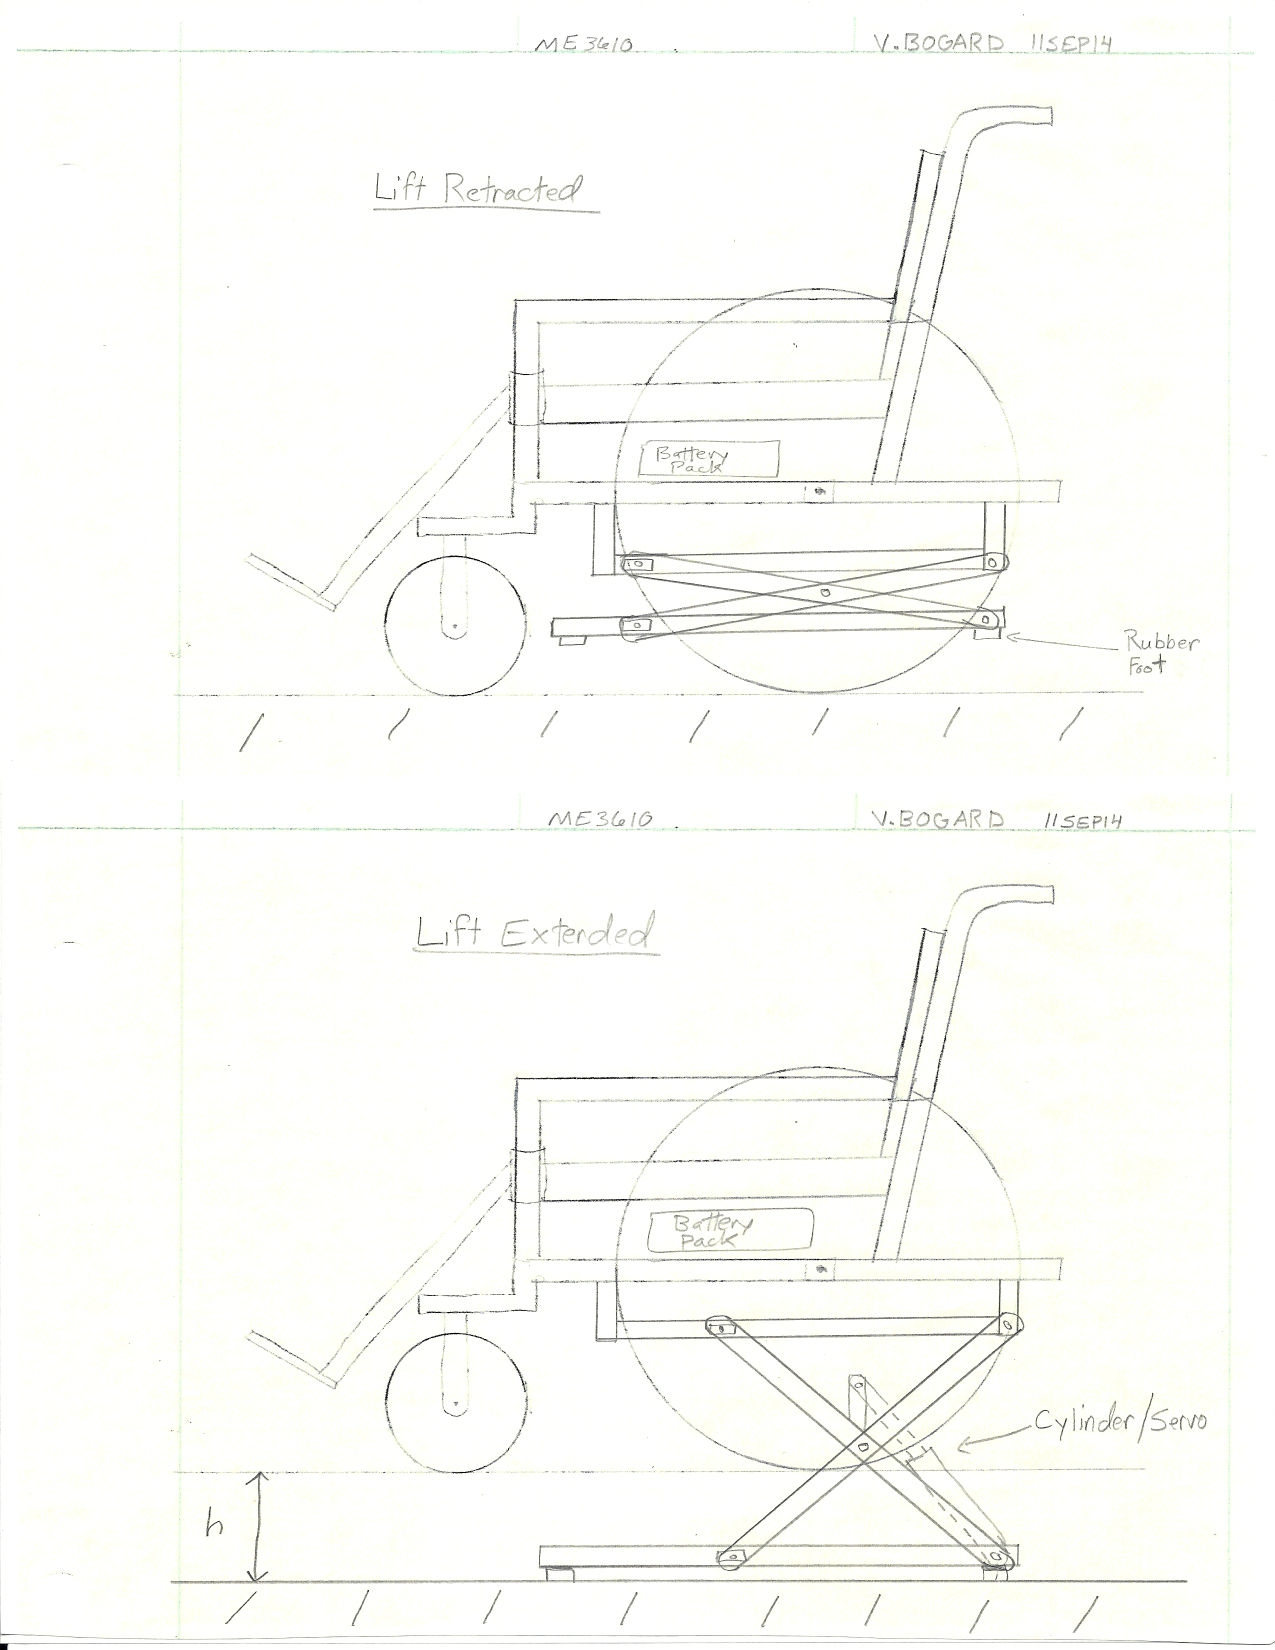 ME3610
V. BOGARD 11SEP14
Lift Retracted
Battery
Pack
Rubber
Foot
ME3610
V. BOGARD 11SEP14
Lift Extended
Battery
Pack
Cylinder/Servo
h